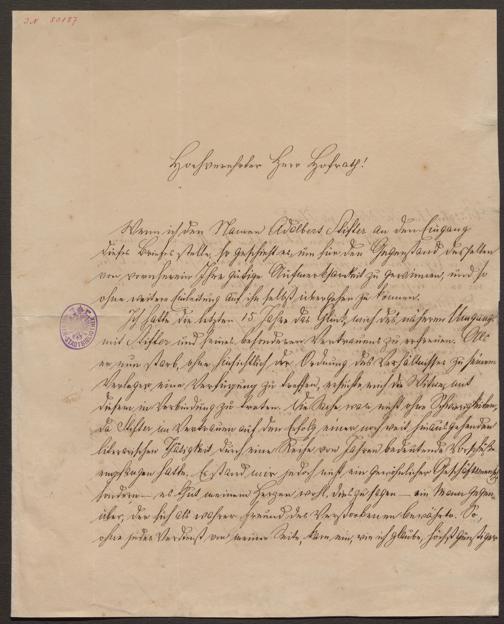 J.N 80187
Hochverehrter Herr Hofrath!
Wenn ich den Namen Adalbert Stifter an den Eingang
dieses Briefes stelle, so geschieht es um für den Gegenstand desselben
von vornherein Ihre gütige Aufmerksamkeit zu gewinnen, und so
ohne weitere Einleitung auf ihn selbst übergehen zu können.
Ich hatte die letzten 15 Jahre das Glück, mich des näheren Umgangs
mit Stifter und seines besonderen Vertrauens zu erfreuen. Als
er nun starb, ohne hinsichtlich der Ordnung des Verhältnisses zu seinem
Verleger eine Verfügung zu treffen, ersuchte mich die Witwe, mit
diesem in Verbindung zu treten. Die Sache war nicht ohne Schwierigkeiten,
da Stifter im Vertrauen auf den Erfolg einer noch weit hinausgehenden
literarischen Thätigkeit durch eine Reihe von Jahren bedeutende Vorschüsse
empfangen hatte. Es stand mir jedoch nicht ein gewöhnlicher Geschäftsmensch,
sondern – es thut meinem Herzen wohl, dies zu sagen – ein Mann gegen-
über, der sich als wahrer Freund des Verstorbenen bewährte. So,
ohne jedes Verdienst von meiner Seite, kam ein, wie ich glaube, höchst günstiger